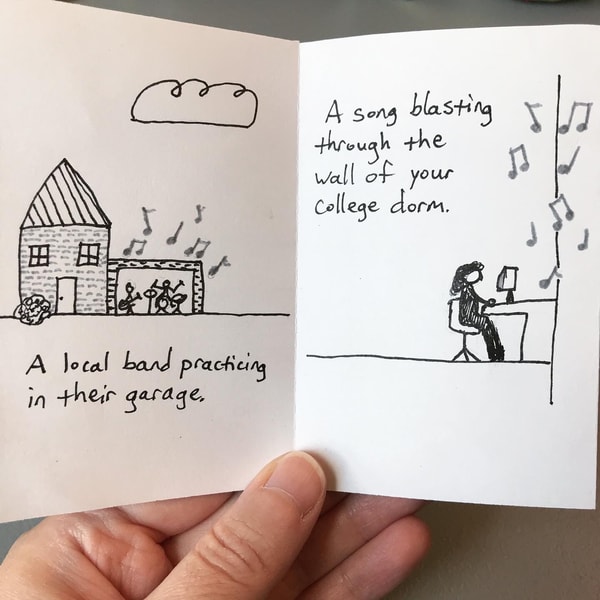 A local band practicing
in their garage.
A song blasting
through the
wall of your
college dorm.